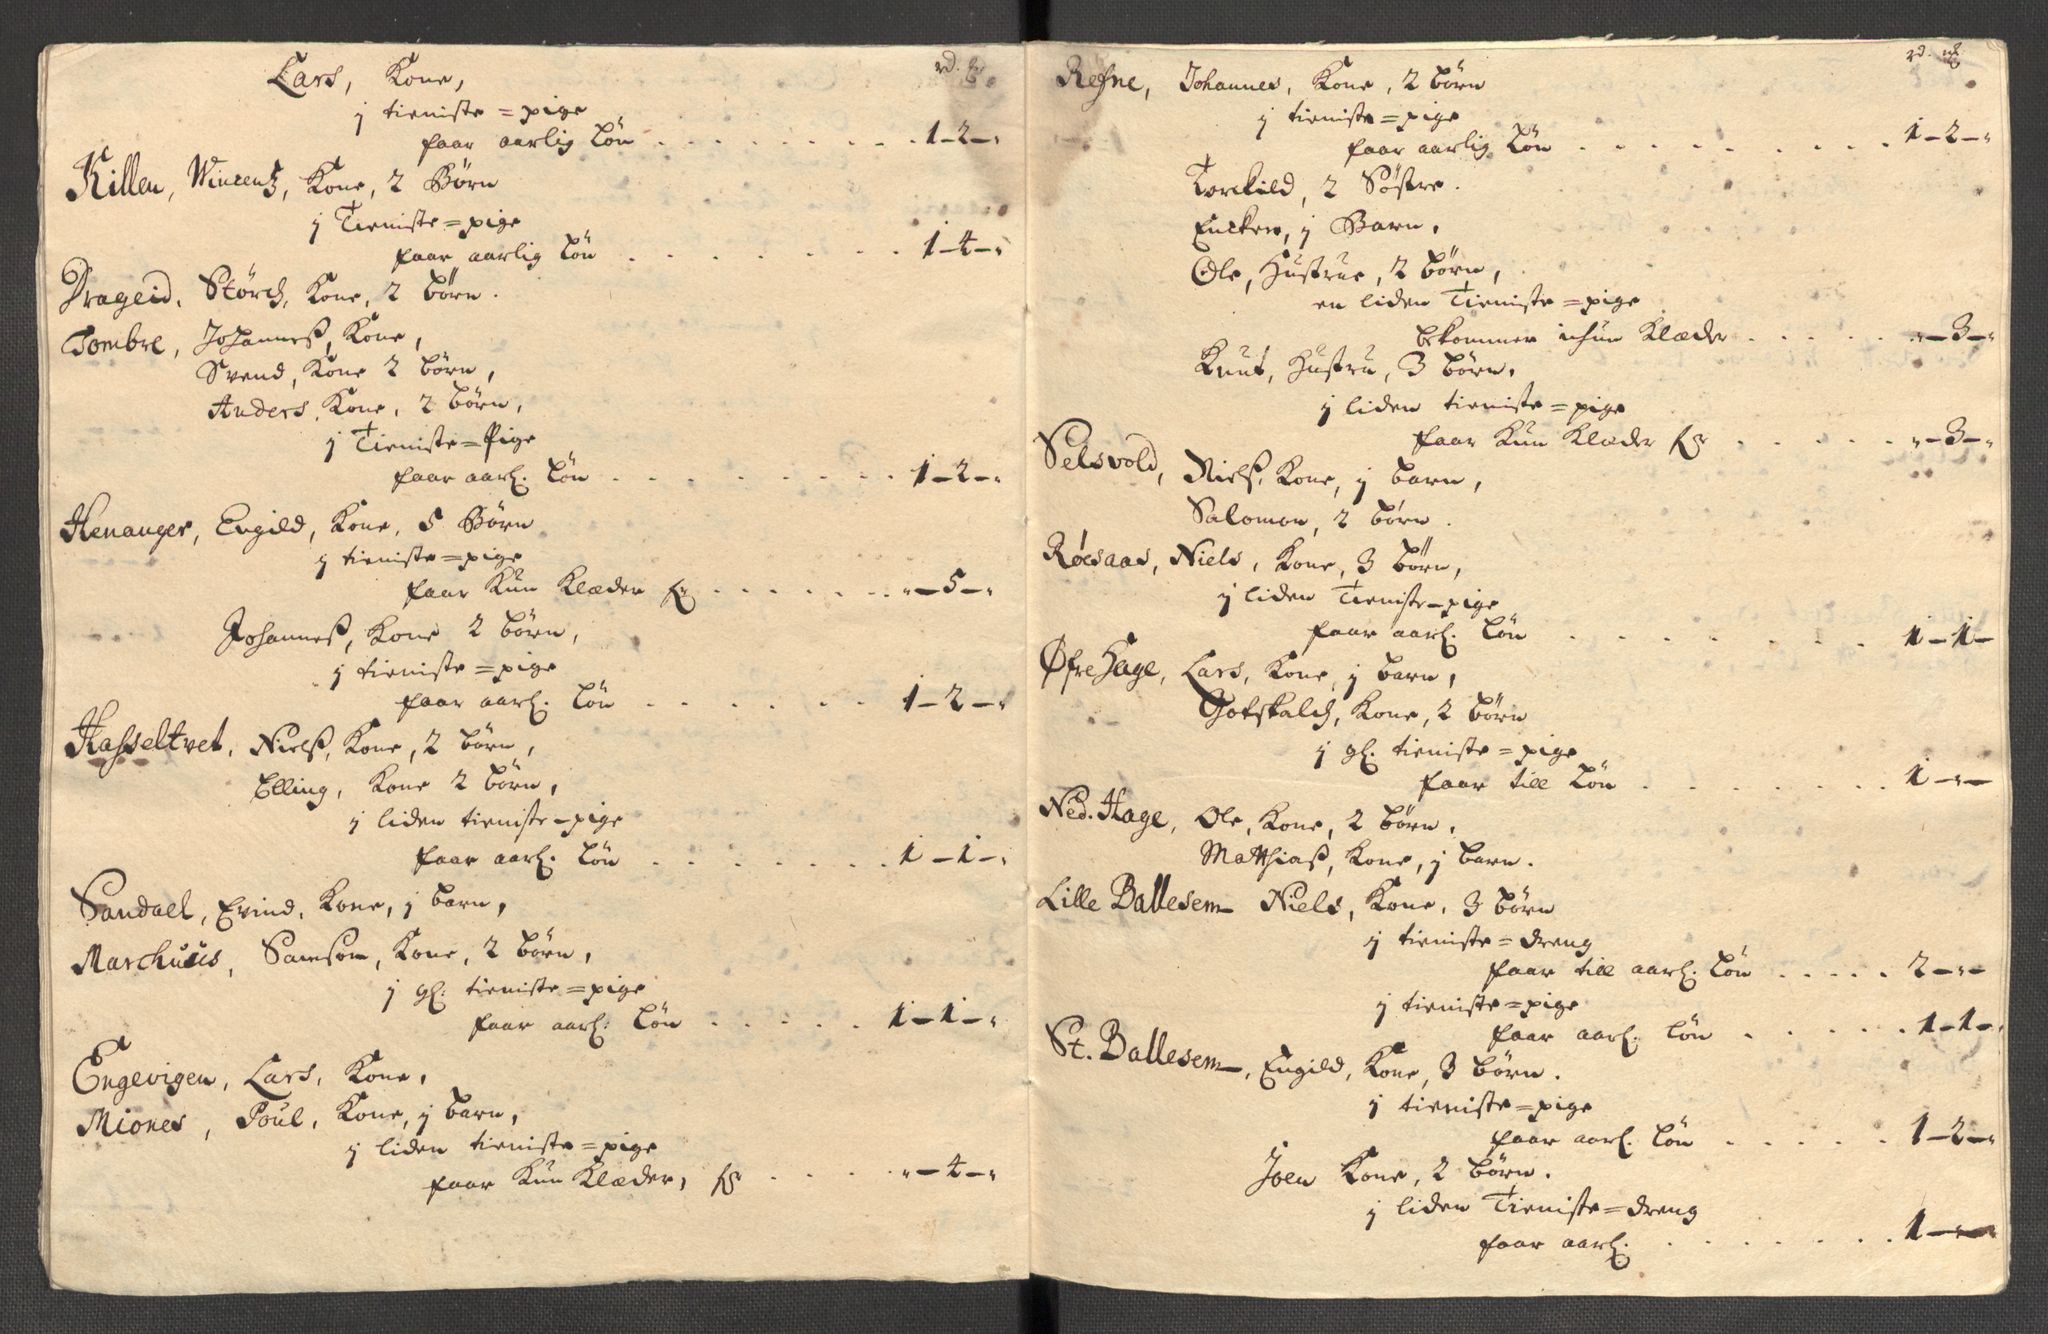 rd. ℳ
Lars, Kone,
j tieniste=pige
faar aarlig Løn . . . . . . . . 1-2-"
Killen, Wincentz, Kone, 2 Børn
j Tieniste=pige
faar aarlig Løn . . . . . . . 1-4-"
Drageid, Størch, Kone, 2 børn.
Tombre, Johanness, Kone,
Svend, Kone 2 børn,
Anders, Kone, 2 børn,
j Tieniste=Pige
faar aarl. Løn . . . . . . . . 1-2-"
Henanger, Engild, Kone, 5 Børn
j tieniste=pige
faar Kun Klæder for . . . . . . "-5-"
Johanness, Kone 2 børn,
j tieniste=pige
faar aarl. Løn . . . . . . 1-2-"
Hasseltvet, Nielss, Kone, 2 børn,
Elling, Kone 2 børn,
j liden tieniste-pige
faar aarl. Løn . . . . . . . 1-1-"
Sandael, Evind, Kone, j barn,
Marchuus, Samson, Kone, 2 børn,
j gl. tieniste=pige
faar aarl. Løn . . . . . 1-1-"
Engevigen, Lars, Kone,
Miones, Poul, Kone, j barn,
j liden tieniste=pige
faar Kun Klæder, for . . . . "-4-"
rd. ℳ
Refne, Johannes, Kone, 2 børn
j tieniste=pige
faar aarlig Løn . . . . . . . . 1-2-"
Torckild, 2 Søstre.
Encken, j Barn,
Ole, Hustrue, 2 børn,
en liden Tieniste=pige
bekommer ichun Klæder . . . . . "-3-"
Knut, Hustru, 3 børn,
j liden tieniste=pige
faar Kun Klæder for . . . . . "-3-"
Selsvold, Nielss, Kone, j barn,
Salomon, 2 børn.
Røesaas, Niels, Kone, 3 børn,
j liden Tieniste-pige
faar aarl. Løn . . . . . . . 1-1-
Øfre Hage, Lars, Kone, j barn,
Gotskalch, Kone, 2 børn
j gl. tieniste=pige
faar till Løn . . . . . . . 1-"-
Ned. Hage, Ole, Kone, 2 børn,
Matthiass, Kone, j barn.
Lille Ballesem Niels, Kone, 3 børn
j tieniste=dreng
faar till aarl. Løn . . . . . 2-"-
j tieniste=pige
faar aarl. Løn . . . . . 1-1-"
St. Ballesem, Engild, Kone, 3 børn.
j tieniste=pige
faar aarl. Løn . . . . . 1-2-"
Joen Kone, 2 børn.
j liden Tieniste=dreng
faar aarl. . . . . . . . 1-"-